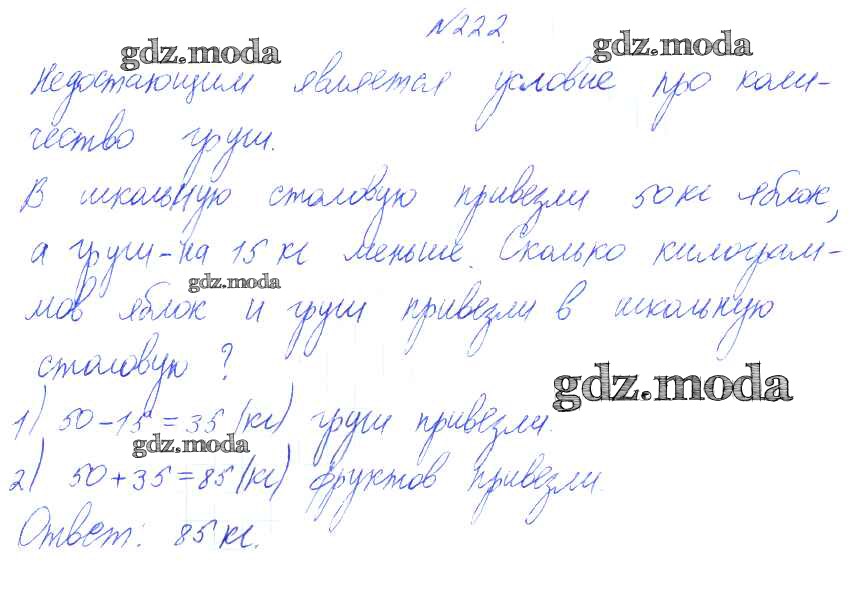 №222.
gdz.moda gdz.moda
Недостающим является условие про коли-
чество груш.
В школьную столовую привезли 50 кг яблок,
а груш – на 15 кг меньше. Сколько килограм-
gdz.moda
мов яблок и груш привезли в школьную
столовую?
gdz.moda
1) 50-15=35 (кг) груш привезли.
gdz.moda
2) 50+35=85 (кг) фруктов привезли.
Ответ: 85 кг.